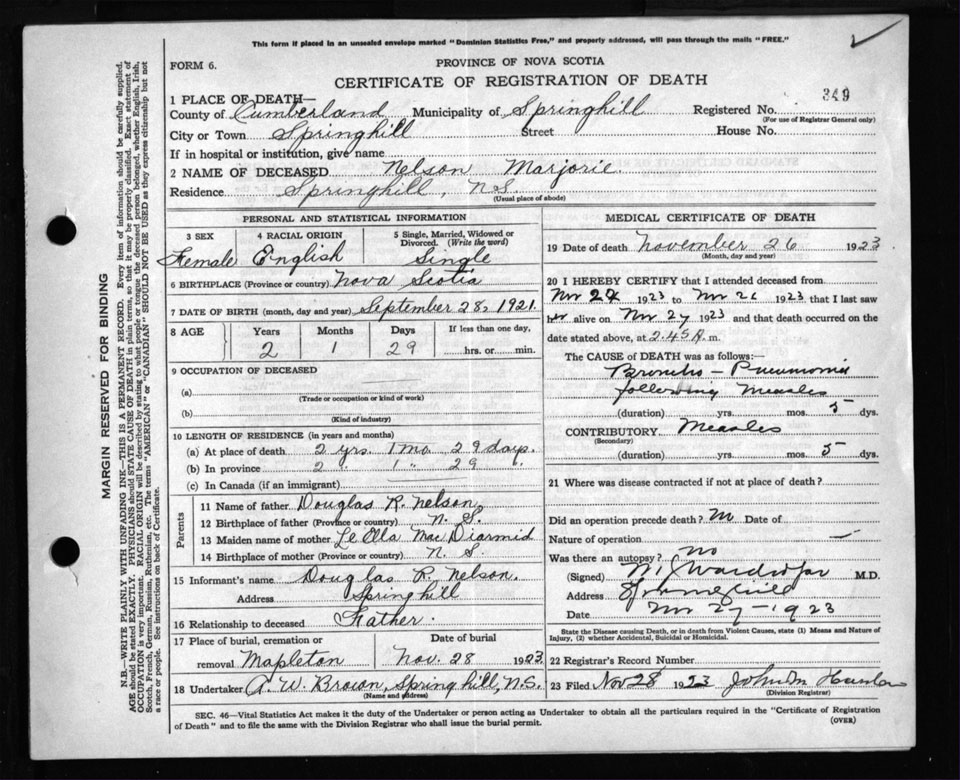 This form if placed in an unsealed envelope marked "Dominion Statistics Free," and properly addressed, will pass through the mails "FREE."
FORM 6.
PROVINCE OF NOVA SCOTIA
CERTIFICATE OF REGISTRATION OF DEATH
1 PLACE OF DEATH—
County of Cumberland Municipality of Springhill Registered No. 349
(For use of Registrar General only)
City or Town Springhill Street House No.
If in hospital or institution, give name
2 NAME OF DECEASED Nelson Marjorie.
Residence Springhill, N.S
(Usual place of abode)
PERSONAL AND STATISTICAL INFORMATION
3 SEX
Female
4 RACIAL ORIGIN
English
5 Single, Married, Widowed or Divorced. (Write the word)
Single
6 BIRTHPLACE (Province or country) Nova Scotia
7 DATE OF BIRTH (month, day and year) September 28, 1921.
8 AGE
Years Months Days If less than one day,
2 1 29 hrs. or min.
9 OCCUPATION OF DECEASED
(a)
(Trade or occupation or kind of work)
(b)
(Kind of industry)
10 LENGTH OF RESIDENCE (in years and months)
(a) At place of death 2 yrs. 1 mo. 29 days.
(b) In province 2 " 1 " 29 "
(c) In Canada (if an immigrant)
Parents
11 Name of father Douglas R. Nelson
12 Birthplace of father (Province or country) N. S.
13 Maiden name of mother Le Ella Mac Diarmid
14 Birthplace of mother (Province or country) N. S
15 Informant's name Douglas R. Nelson.
Address Springhill
16 Relationship to deceased Father.
17 Place of burial, cremation or removal Mapleton
Date of burial
Nov. 28 1923
18 Undertaker A. W. Brown, Springhill, N.S.
(Name and address)
MEDICAL CERTIFICATE OF DEATH
19 Date of death November 26 1923
(Month, day and year)
20 I HEREBY CERTIFY that I attended deceased from
Nov 24 1923 to Nov 26 1923 that I last saw
her alive on Nov 27 1923 and that death occurred on the
date stated above, at 2.45 A. m.
The CAUSE OF DEATH was as follows:—
Broncho-Pneumonia
following Measles
(duration) yrs. mos. 5 dys.
CONTRIBUTORY Measles
(Secondary)
(duration) yrs. mos. 5 dys.
21 Where was disease contracted if not at place of death?
Did an operation precede death? No Date of
Nature of operation
Was there an autopsy? no
(Signed) M.D.
Address Springhill
Date Nov 27-1923
State the Disease causing Death, or in death from Violent Causes, state (1) Means and Nature of Injury, (2) whether Accidental, Suicidal or Homicidal.
22 Registrar's Record Number
23 Filed Nov 28 1923
(Division Registrar)
SEC. 46—Vital Statistics Act makes it the duty of the Undertaker or person acting as Undertaker to obtain all the particulars required in the "Certificate of Registration
of Death" and to file the same with the Division Registrar who shall issue the burial permit.
(OVER)
MARGIN RESERVED FOR BINDING
N.B.—WRITE PLAINLY WITH UNFADING INK—THIS IS A PERMANENT RECORD. Every item of information should be carefully supplied.
AGE should be stated EXACTLY. PHYSICIANS should STATE CAUSE OF DEATH in plain terms, so that it may be properly classified. Exact statement of
OCCUPATION is very important. RACIAL ORIGIN will be described by stating to what people or tongue the deceased person belonged, whether English, Irish,
Scotch, French, German, Russian, Ruthenian, etc. The terms "AMERICAN" or "CANADIAN" SHOULD NOT BE USED as they express citizenship but not
a race or people. See instructions on back of Certificate.